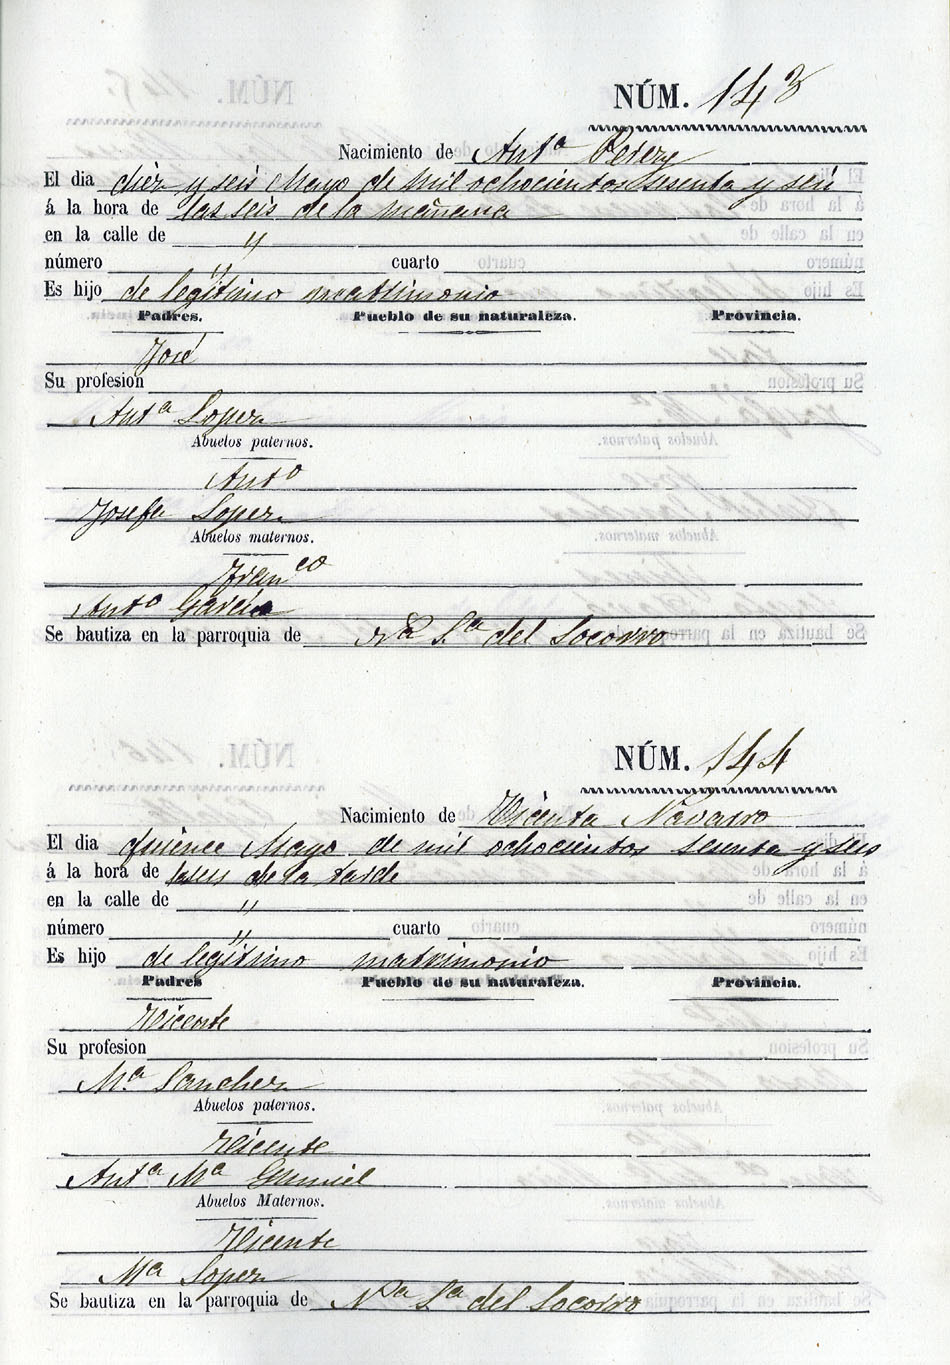 NÚM. 143
Nacimiento de Antª Perez
El dia diez y seis Mayo de mil ochocientos sesenta y seis
á la hora de las seis de la mañana
en la calle de "
número " cuarto
Es hijo de legitimo matrimonio
Padres. Pueblo de su naturaleza. Provincia.
José
Su profesion
Antª Lopez
Abuelos paternos.
Antº
Josefa Lopez
Abuelos maternos.
Franco
Antª Garcia
Se bautiza en la parroquia de Nª Sª del Socorro
NÚM. 144
Nacimiento de Vicenta Navarro
El dia quince Mayo de mil ochocientos sesenta y seis
á la hora de las seis de la tarde
en la calle de "
número " cuarto
Es hijo de legitimo matrimonio
Padres Pueblo de su naturaleza. Provincia.
Vicente
Su profesion
Mª Sanchez
Abuelos paternos.
Vicente
Antª Mª
Abuelos Maternos.
Vicente
Mª Lopez
Se bautiza en la parroquia de Nª Sª del Socorro